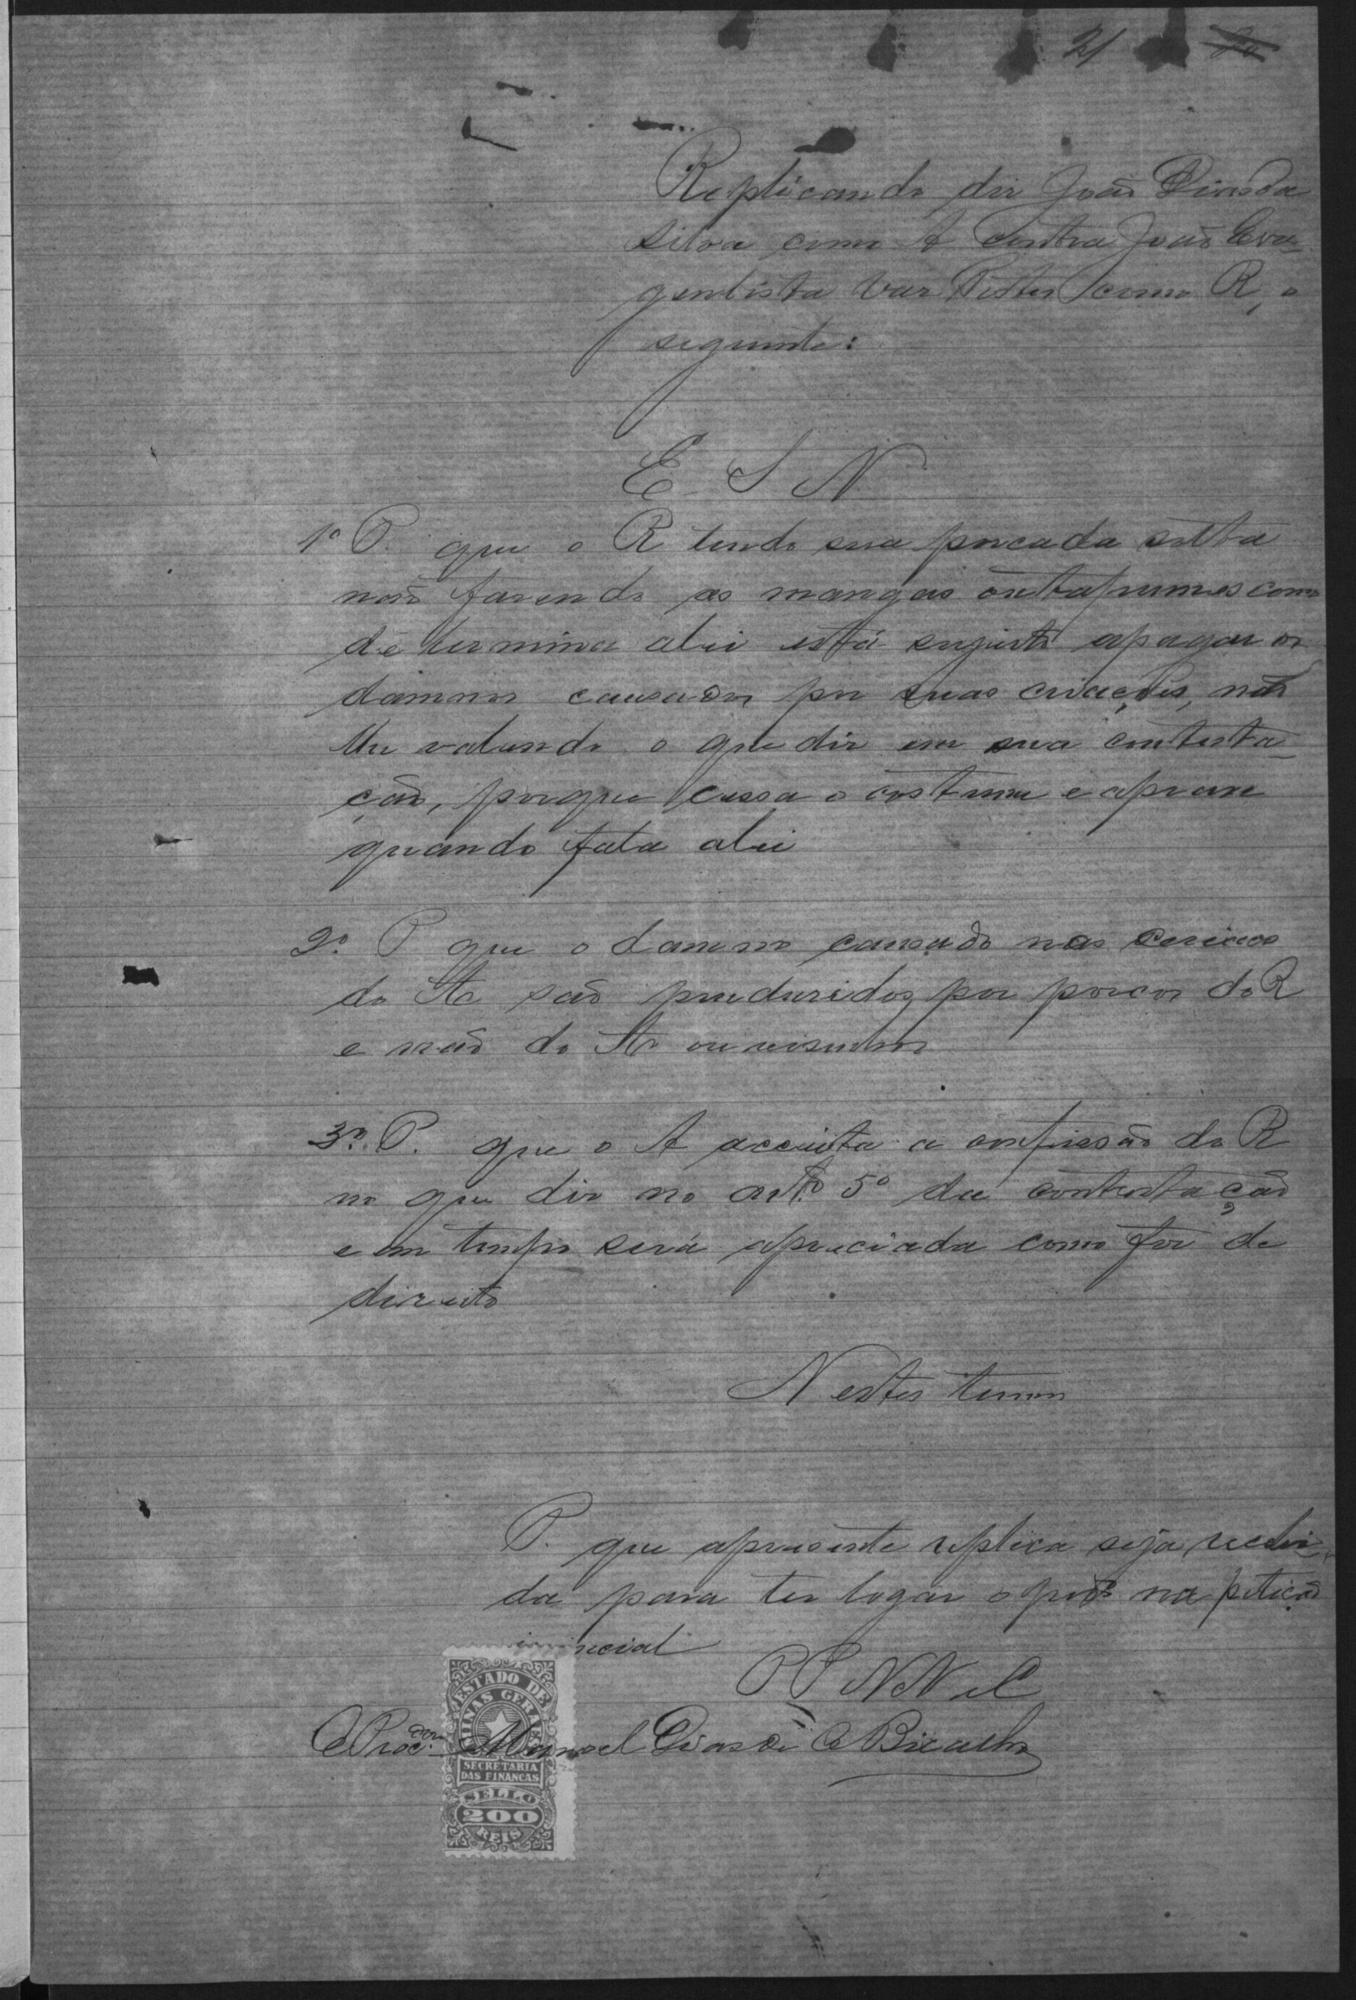 21 20
Replicando diz João Dias da
Silva como A contra João Eva-
gelista como R, o
seguinte:
E S N
1º P. que o R tendo sua porcada solta
não fazendo as mangas ou tapumes como
determina a lei está sugeito a pagar os
damnos causados por suas criações, não
lhe valendo o que diz em sua contesta-
ção, porque cessa o costume e a praxe
quando fala a lei
2º P que o damno causado nas
do A são produzidos por porcos do R
e não do A ou visinhos
3º P. que o A acceita a confissão do R
no que diz no artº 5º da contestação
e em tempo será apreciada como for de
direito
Nestes termos
P. que a presente replica seja recebi-
da para ter logar o na petição
inicial
P P N N e C
O Procdor Manoel Dias de Bicalho
ESTADO DE
MINAS GERAES
SECRETARIA
DAS FINANÇAS
SELLO
200
REIS